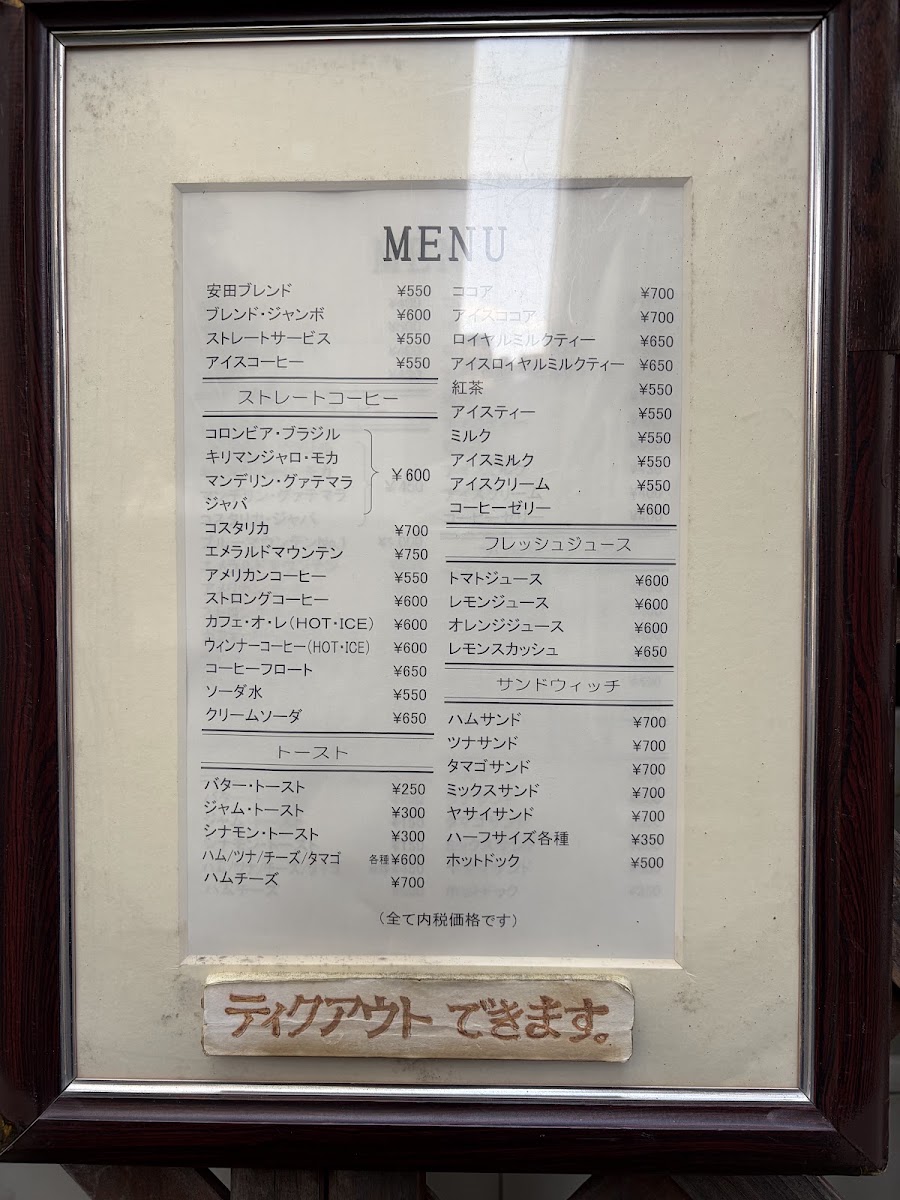 MENU
安田ブレンド ¥550
ブレンド・ジャンボ ¥600
ストレートサービス ¥550
アイスコーヒー ¥550
ストレートコーヒー
コロンビア・ブラジル
キリマンジャロ・モカ
マンデリン・グァテマラ
ジャバ
¥600
コスタリカ ¥700
エメラルドマウンテン ¥750
アメリカンコーヒー ¥550
ストロングコーヒー ¥600
カフェ・オ・レ(HOT・ICE) ¥600
ウィンナーコーヒー(HOT・ICE) ¥600
コーヒーフロート ¥650
ソーダ水 ¥550
クリームソーダ ¥650
トースト
バター・トースト ¥250
ジャム・トースト ¥300
シナモン・トースト ¥300
ハム/ツナ/チーズ/タマゴ 各種¥600
ハムチーズ ¥700
ココア ¥700
アイスココア ¥700
ロイヤルミルクティー ¥650
アイスロイヤルミルクティー ¥650
紅茶 ¥550
アイスティー ¥550
ミルク ¥550
アイスミルク ¥550
アイスクリーム ¥550
コーヒーゼリー ¥600
フレッシュジュース
トマトジュース ¥600
レモンジュース ¥600
オレンジジュース ¥600
レモンスカッシュ ¥650
サンドウィッチ
ハムサンド ¥700
ツナサンド ¥700
タマゴサンド ¥700
ミックスサンド ¥700
ヤサイサンド ¥700
ハーフサイズ各種 ¥350
ホットドック ¥500
(全て内税価格です)
ティクアウトできます。